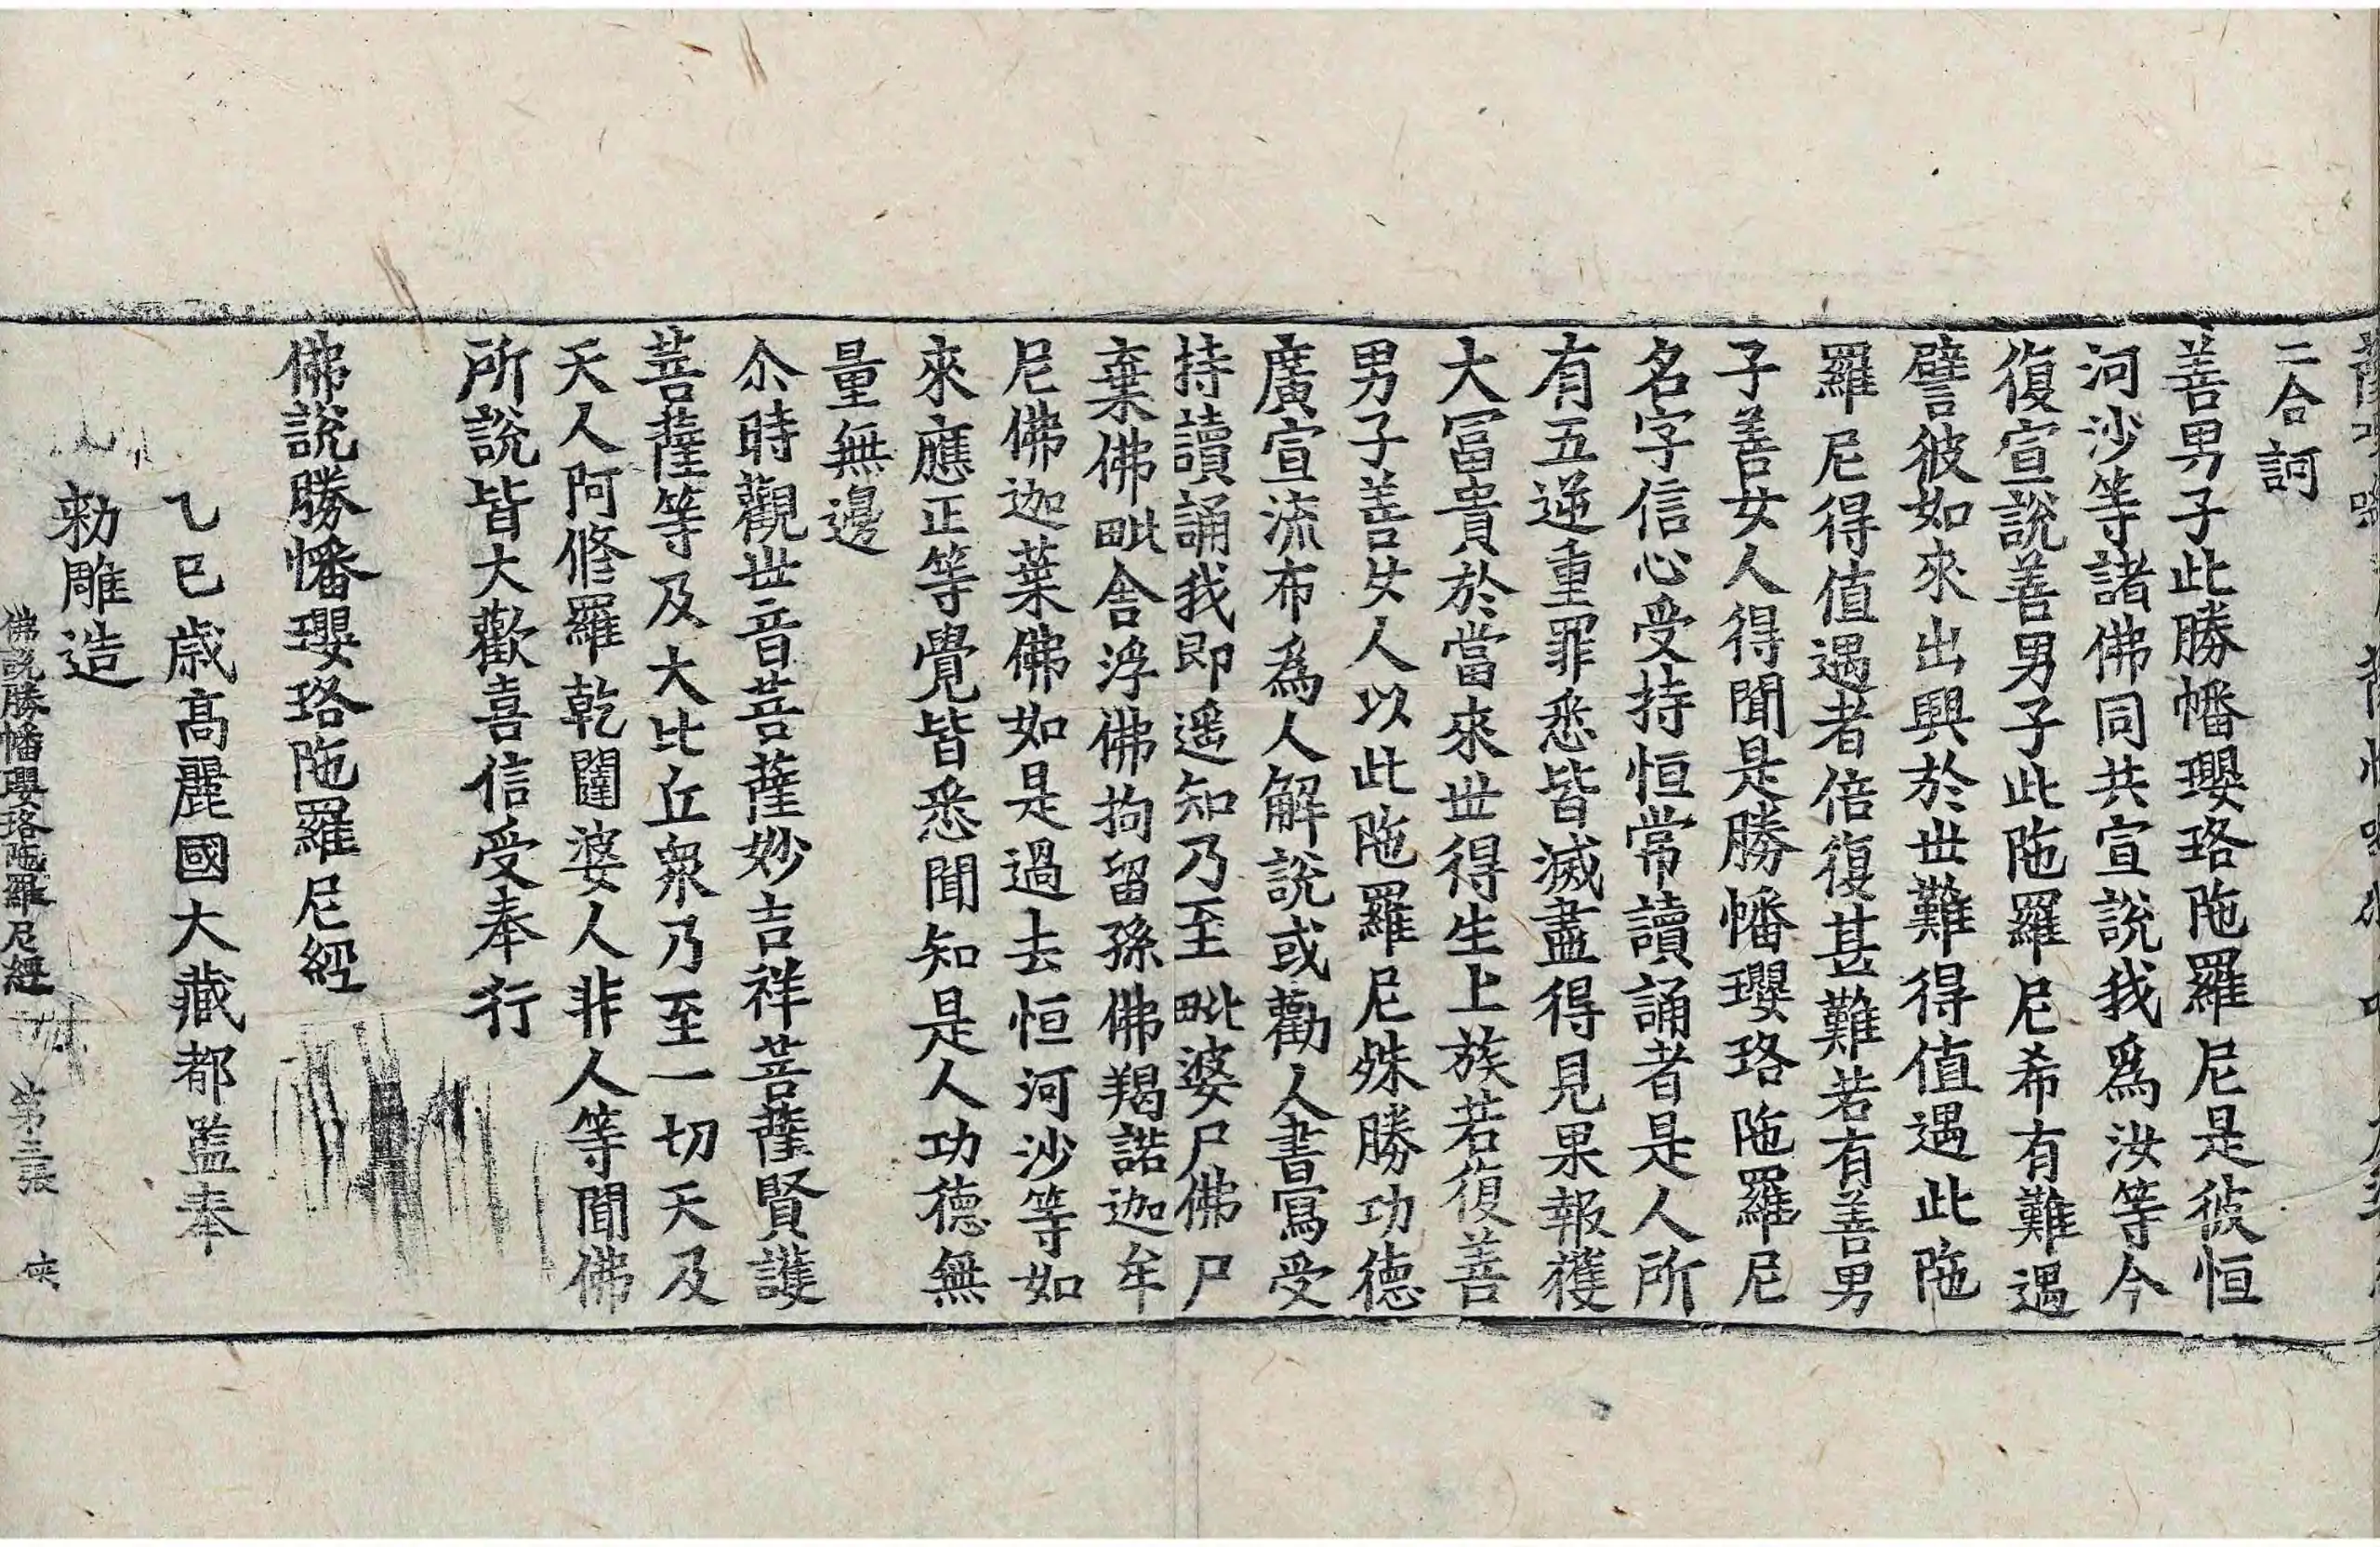 二合訶
善男子此勝幡瓔珞陁羅尼是彼恒
河沙等諸佛同共宣說我為汝等今
復宣說善男子此陁羅尼希有難遇
譬彼如來出興於世難得值遇此陁
羅尼得值遇者倍復甚難若有善男
子善女人得聞是勝幡瓔珞陁羅尼
名字信心受持恒常讀誦者是人所
有五逆重罪悉皆滅盡得見果報獲
大冨貴於當來世得生上族若復善
男子善女人以此陁羅尼殊勝功德
廣宣流布為人解說或勸人書寫受
持讀誦我即遥知乃至毗婆尸佛尸
棄佛毗舎浮佛拘留孫佛羯諾迦牟
尼佛迦葉佛如是過去恒河沙等如
來應正等覺皆悉聞知是人功德無
量無邊
尒時觀世音菩薩妙吉祥菩薩賢護
菩薩等及大比丘衆乃至一切天及
天人阿修羅乾闥婆人非人等聞佛
所說皆大歡喜信受奉行
佛說勝幡瓔珞陁羅尼經
乙巳歲高麗國大藏都監奉
勑雕造
佛說勝幡瓔珞陁羅尼經 第三張 俠